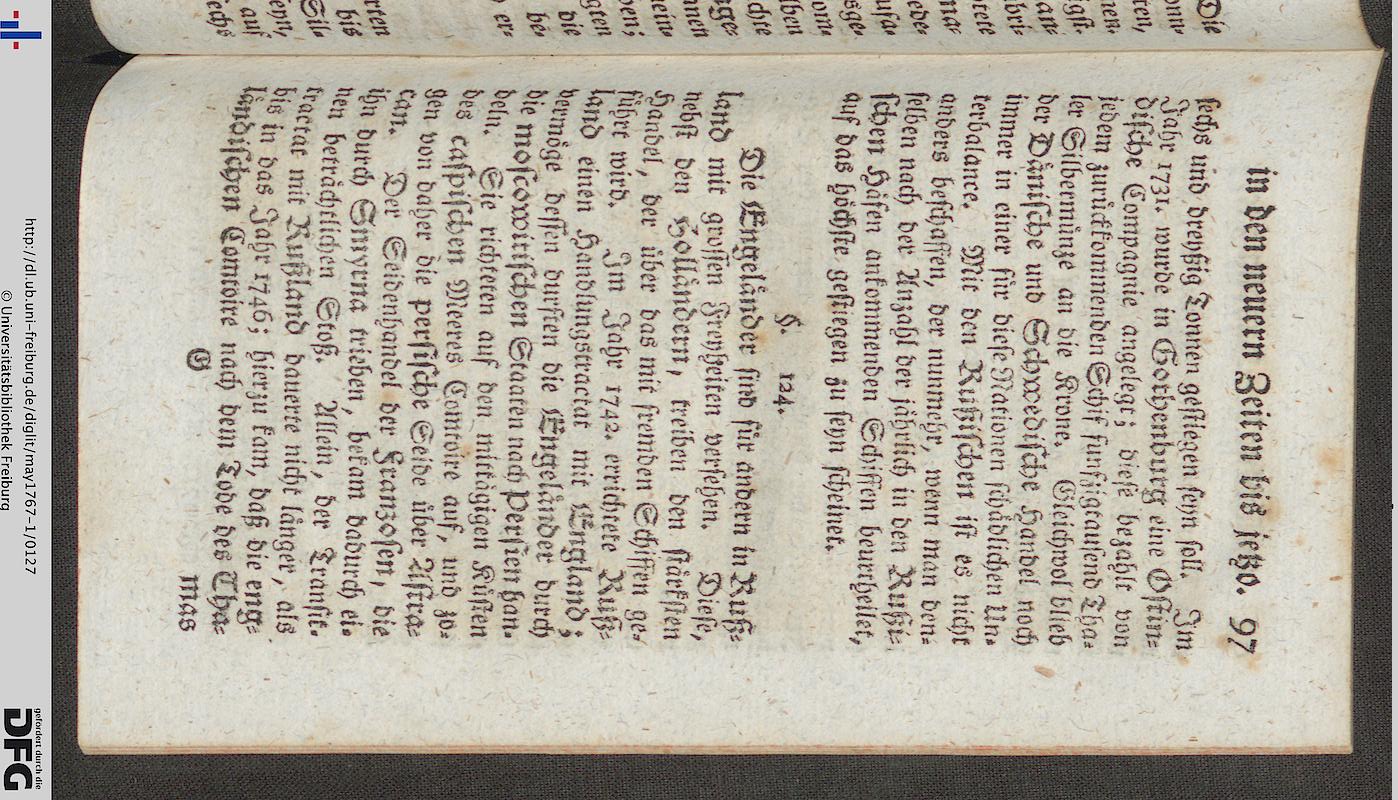 in den neuern Zeiten bis jetzo. 97
sechs und dreyßig Tonnen gestiegen seyn soll. Im
Jahr 1731. wurde in Gothenburg eine Ostin-
dische Compagnie angelegt; diese bezahlt von
jedem zurückkommenden Schif funfzigtausend Tha-
ler Silbermünze an die Krone. Gleichwol blieb
der Dänische und Schwedische Handel noch
immer in einer für diese Nationen schädlichen Un-
terbalance. Mit den Rußischen ist es nicht
anders beschaffen, der nunmehr, wenn man den-
selben nach der Anzahl der jährlich in den Rußi-
schen Häfen ankommenden Schiffen beurtheilet,
auf das höchste gestiegen zu seyn scheinet.
§. 124.
Die Engeländer sind für andern in Ruß-
land mit grossen Freyheiten versehen. Diese,
nebst den Holländern, treiben den stärksten
Handel, der über das mit fremden Schiffen ge-
führt wird. Im Jahr 1742. errichtete Ruß-
land einen Handlungstractat mit England;
vermöge dessen durften die Engeländer durch
die moscowitischen Staaten nach Persien han-
deln. Sie richteten auf den mittägigen Küsten
des caspischen Meeres Comtoire auf, und zo-
gen von daher die persische Seide über Astra-
can. Der Seidenhandel der Franzosen, die
ihn durch Smyrna trieben, bekam dadurch ei-
nen beträchtlichen Stoß. Allein, der Transit-
tractat mit Rußland dauerte nicht länger, als
bis in das Jahr 1746; hierzu kam, daß die eng-
ländischen Comtoire nach dem Tode des Tha-
G mas
http://dl.ub.uni-freiburg.de/diglit/may1767-1/0127
© Universitätsbibliothek Freiburg
gefördert durch die
DFG